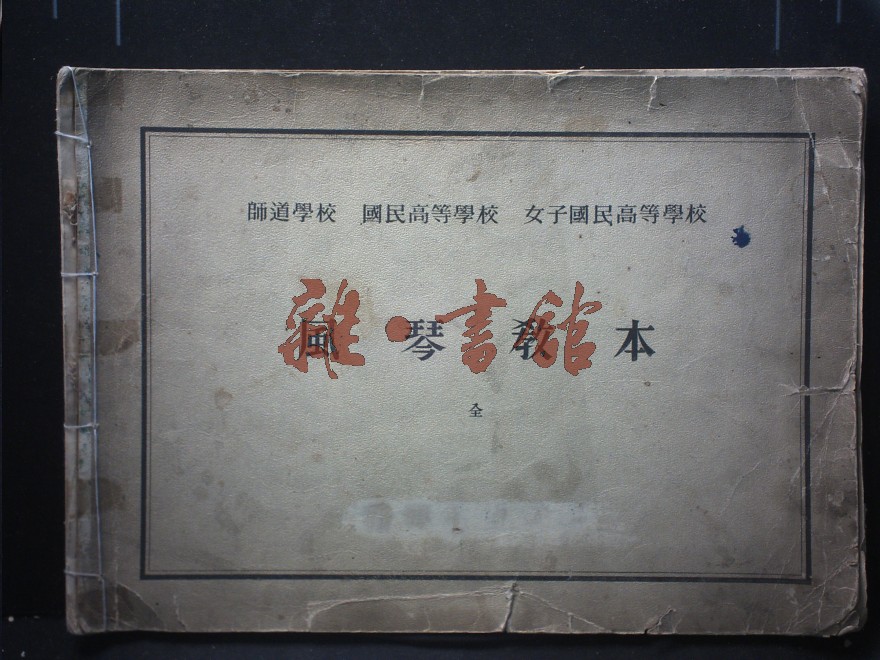 師道學校 國民高等學校 女子國民高等學校
風琴教本
雜·書館
全